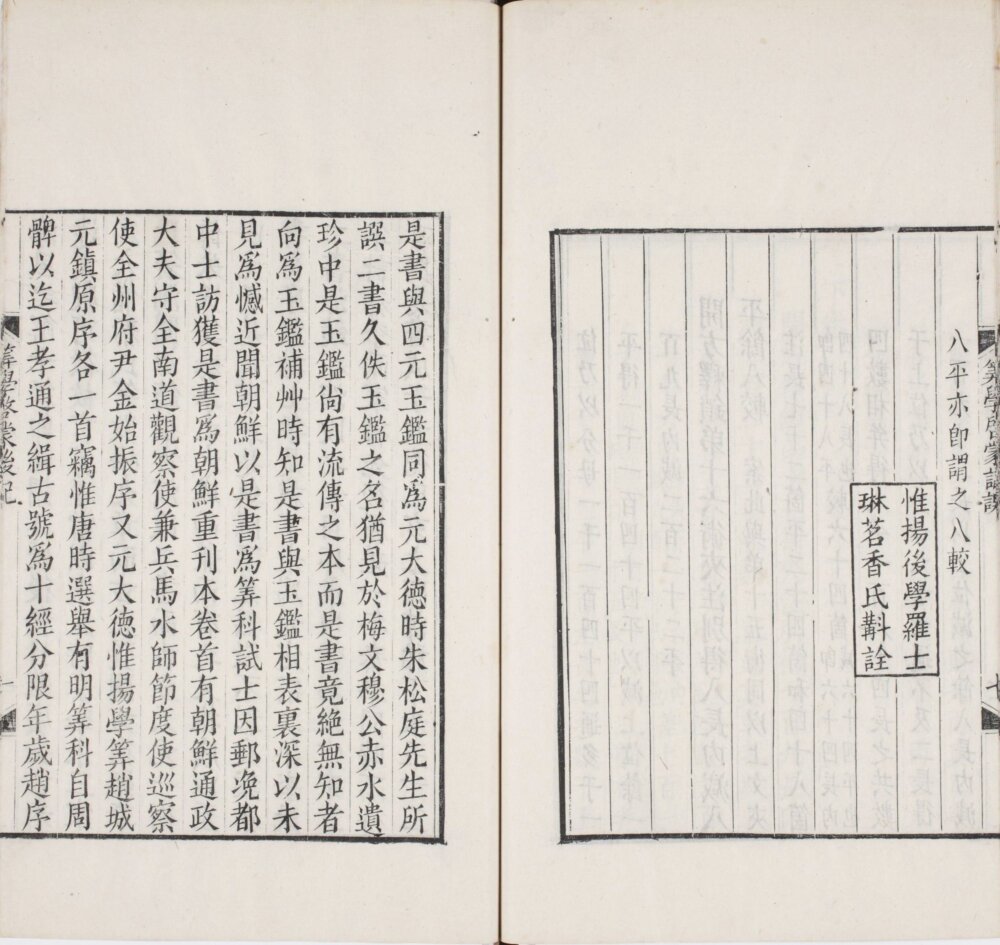 筭學啓蒙識誤
七
八平亦卽謂之八較
惟揚後學羅士
琳茗香氏斠詮
是書與四元玉鑑同爲元大德時朱松庭先生所
譔二書久佚玉鑑之名猶見於梅文穆公赤水遺
珍中是玉鑑尙有流傳之本而是書竟絶無知者
向爲玉鑑補艸時知是書與玉鑑相表裏深以未
見爲憾近聞朝鮮以是書爲筭科試士因郵浼都
中士訪獲是書爲朝鮮重刊本卷首有朝鮮通政
大夫守全南道觀察使兼兵馬水師節度使巡察
使全州府尹金始振序又元大德惟揚學筭趙城
元鎮原序各一首竊惟唐時選舉有明筭科自周
髀以迄王孝通之緝古號爲十經分限年歲趙序
筭學啓蒙後記
一